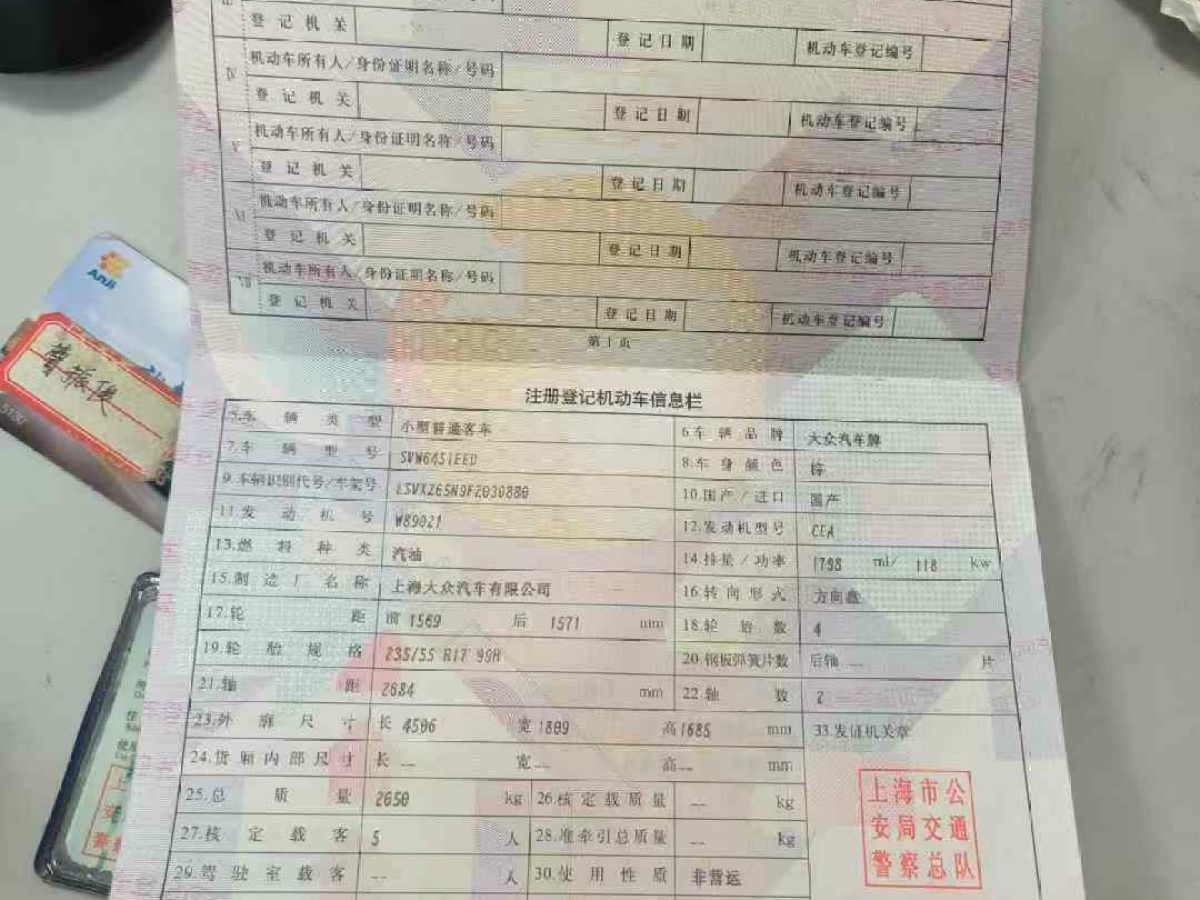 登记机关 登记日期 机动车登记编号
Ⅳ 机动车所有人/身份证明名称/号码
登记机关 登记日期 机动车登记编号
Ⅴ 机动车所有人/身份证明名称/号码
登记机关 登记日期 机动车登记编号
Ⅵ 机动车所有人/身份证明名称/号码
登记机关 登记日期 机动车登记编号
Ⅶ 机动车所有人/身份证明名称/号码
登记机关 登记日期 机动车登记编号
第1页
注册登记机动车信息栏
5.车辆类型 小型普通客车 6.车辆品牌 大众汽车牌
7.车辆型号 SVW6451EED 8.车身颜色 棕
9.车辆识别代号/车架号 LSVXZ65N9F2030880 10.国产/进口 国产
11.发动机号 W89021 12.发动机型号 CEA
13.燃料种类 汽油 14.排量/功率 1798 ml/ 118 kw
15.制造厂名称 上海大众汽车有限公司 16.转向形式 方向盘
17.轮距 前 1569 后 1571 mm 18.轮胎数 4
19.轮胎规格 235/55 R17 99H 20.钢板弹簧片数 后轴 -- 片
21.轴距 2684 mm 22.轴数 2
23.外廓尺寸 长 4506 宽 1809 高 1685 mm 33.发证机关章
24.货厢内部尺寸 长 -- 宽 -- 高 -- mm
25.总质量 2050 kg 26.核定载质量 -- kg
27.核定载客 5 人 28.准牵引总质量 -- kg
29.驾驶室载客 -- 人 30.使用性质 非营运
上海市公
安局交通
警察总队
AnJi
曹振俊